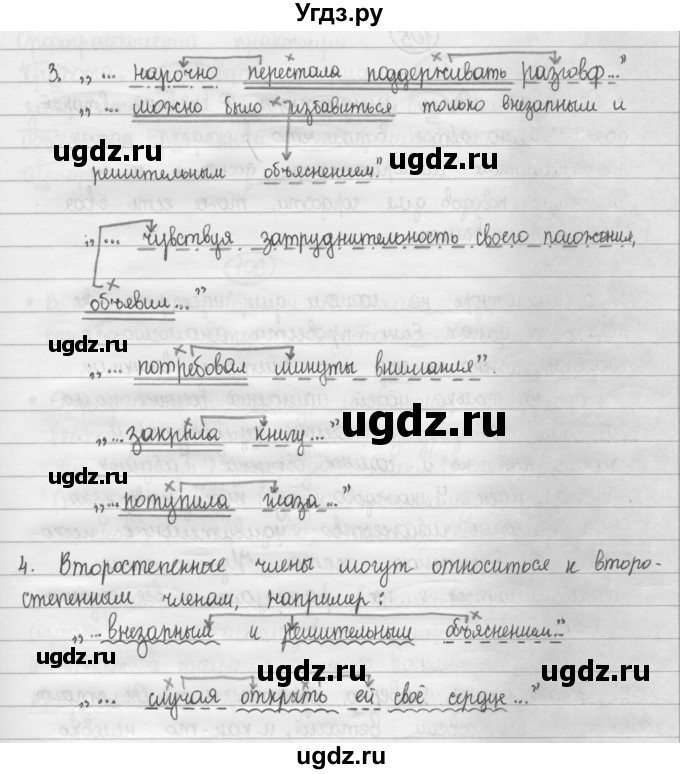 Угдз.ру
3. „... нарочно перестала поддерживать разговор..."
„... можно было избавиться только внезапным и
ugdz.ru ugdz.ru
решительным объяснением."
„... чувствуя затруднительность своего положения,
объявил..."
ugdz.ru
„... потребовал минуты внимания".
ugdz.ru
„... закрыла книгу..."
ugdz.ru
„... потупила глаза..."
4. Второстепенные члены могут относиться к второ-
степенным членам, например:
„... внезапным и решительным объяснением..."
ugdz.ru ugdz.ru ugdz.ru
„... случая открыть ей своё сердце..."
ugdz.ru